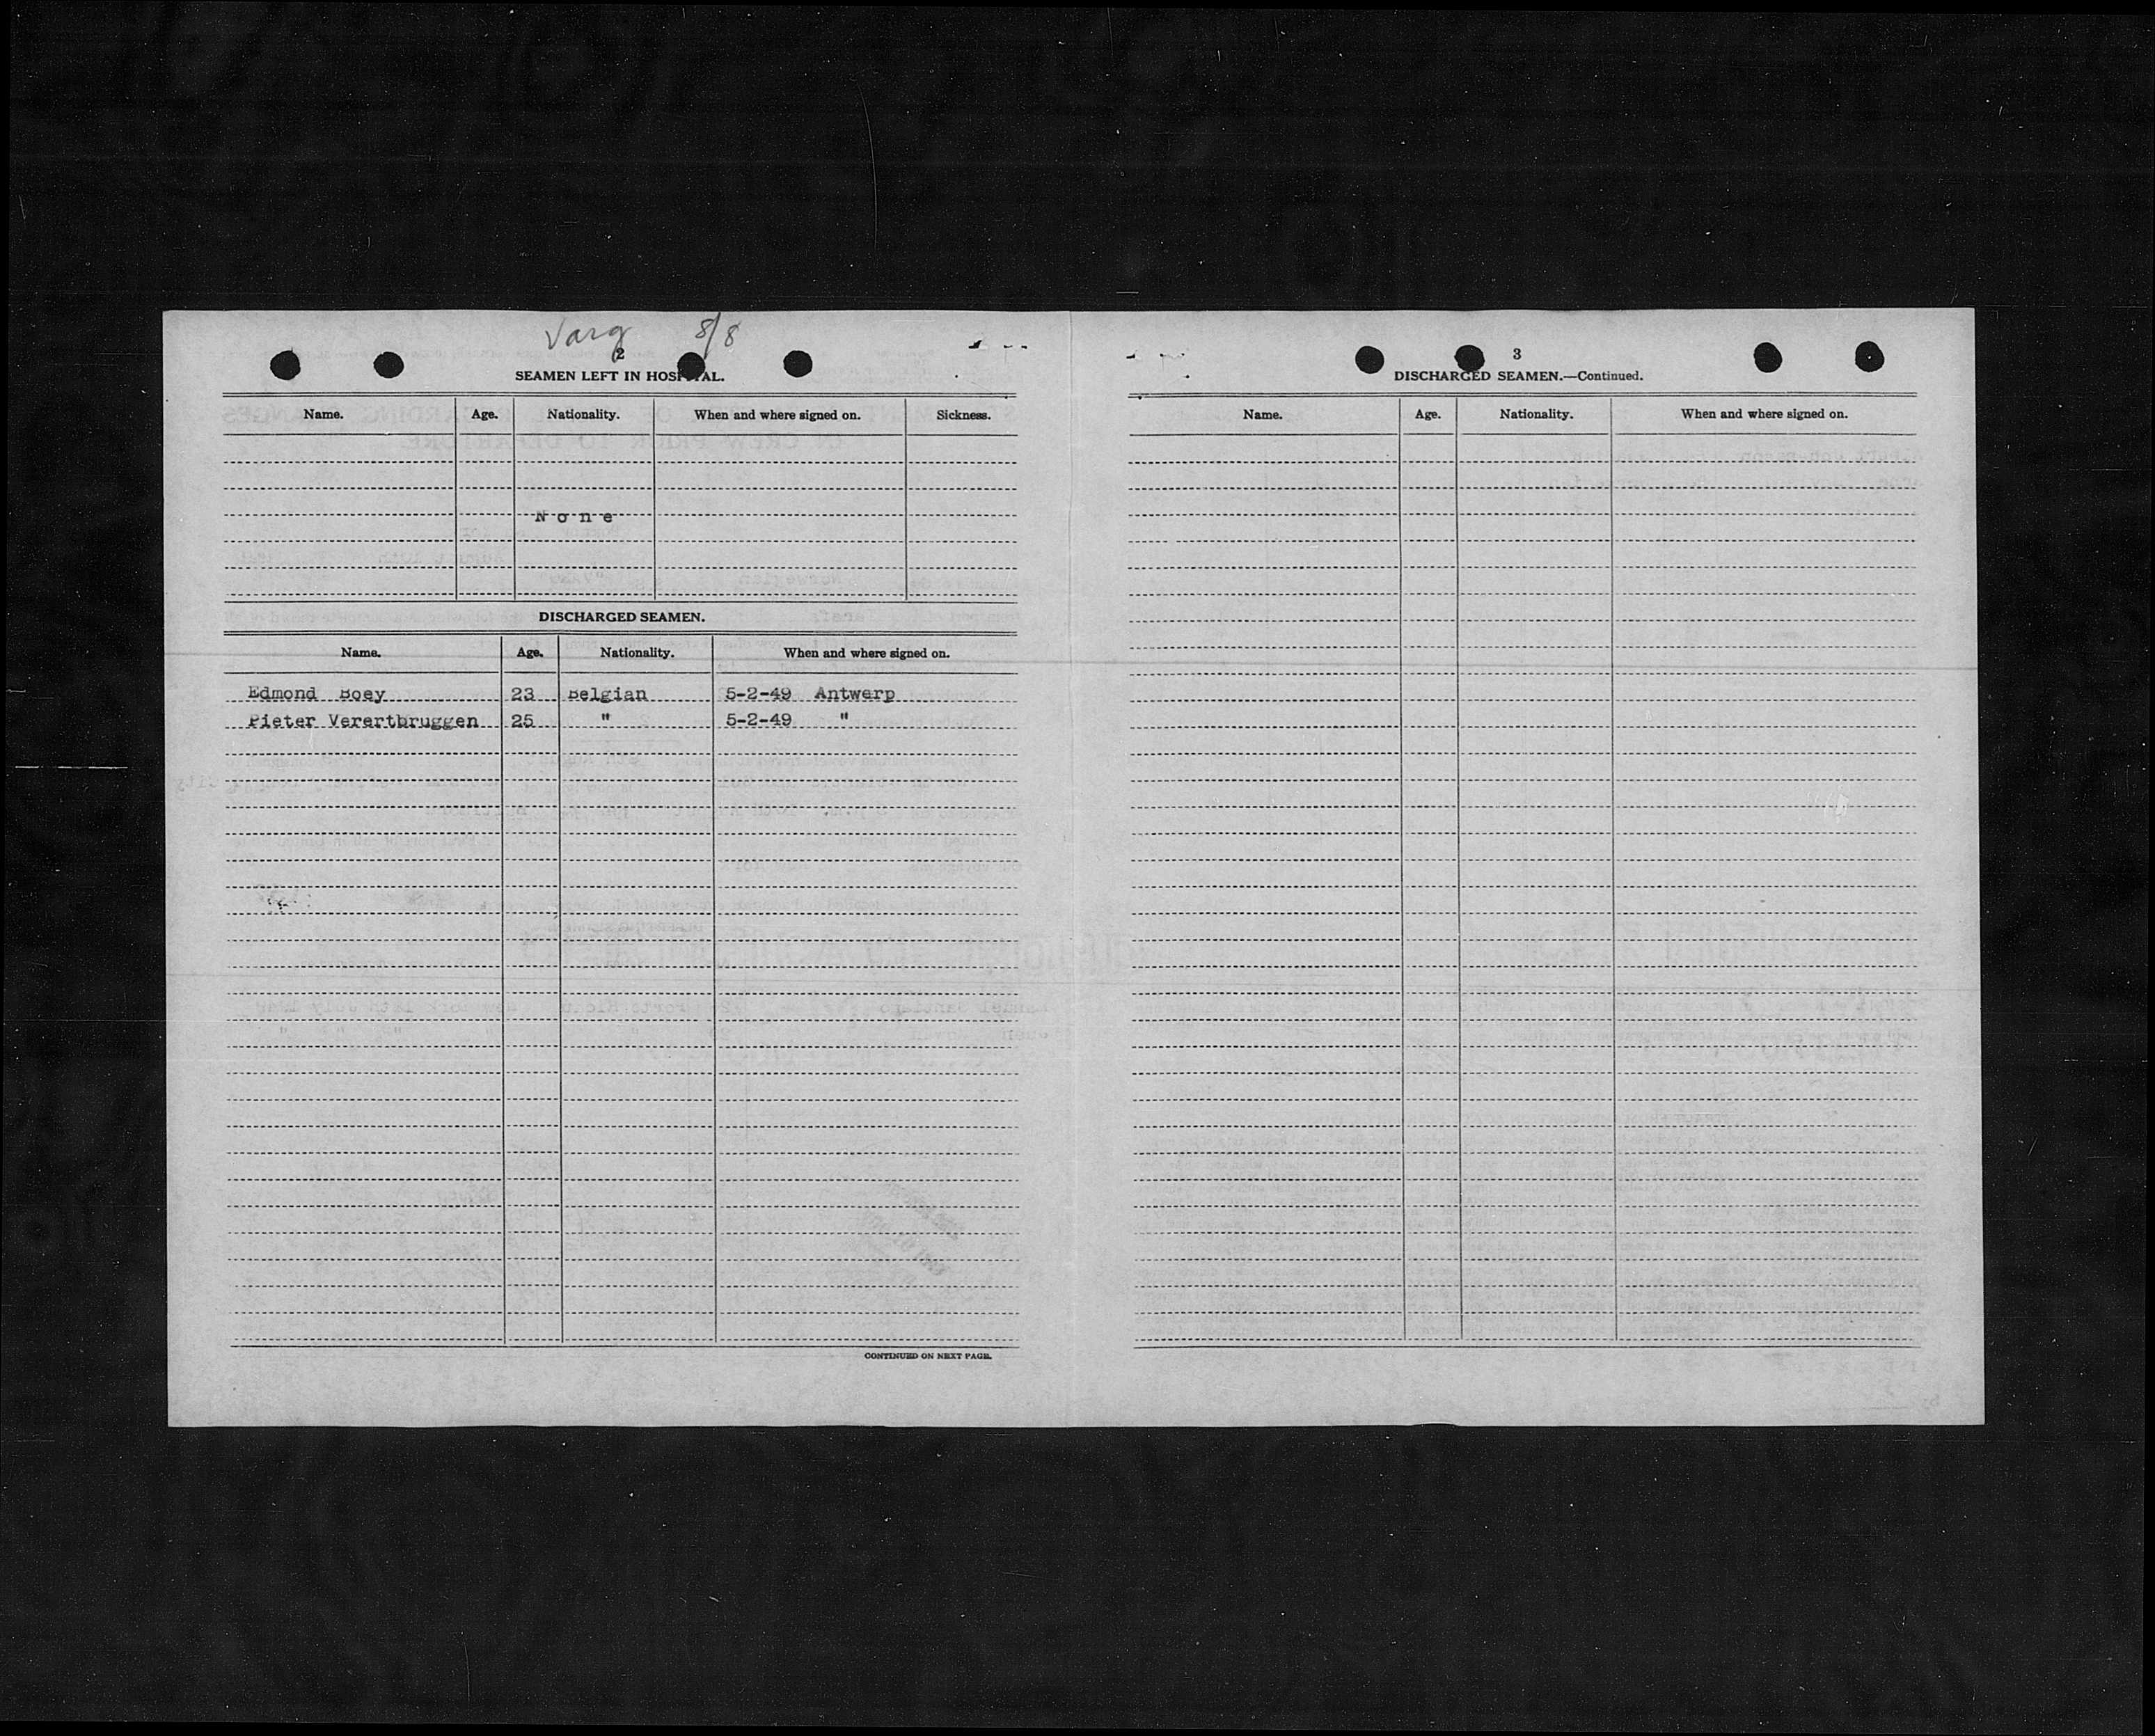 Varg 8/8
2
SEAMEN LEFT IN HOSPITAL.
Name. Age. Nationality. When and where signed on. Sickness.
None
DISCHARGED SEAMEN.
Name. Age. Nationality. When and where signed on.
Edmond Boey 23 Belgian 5-2-49 Antwerp
Pieter Verertbruggen 25 " 5-2-49 "
CONTINUED ON NEXT PAGE.
3
DISCHARGED SEAMEN.—Continued.
Name. Age. Nationality. When and where signed on.